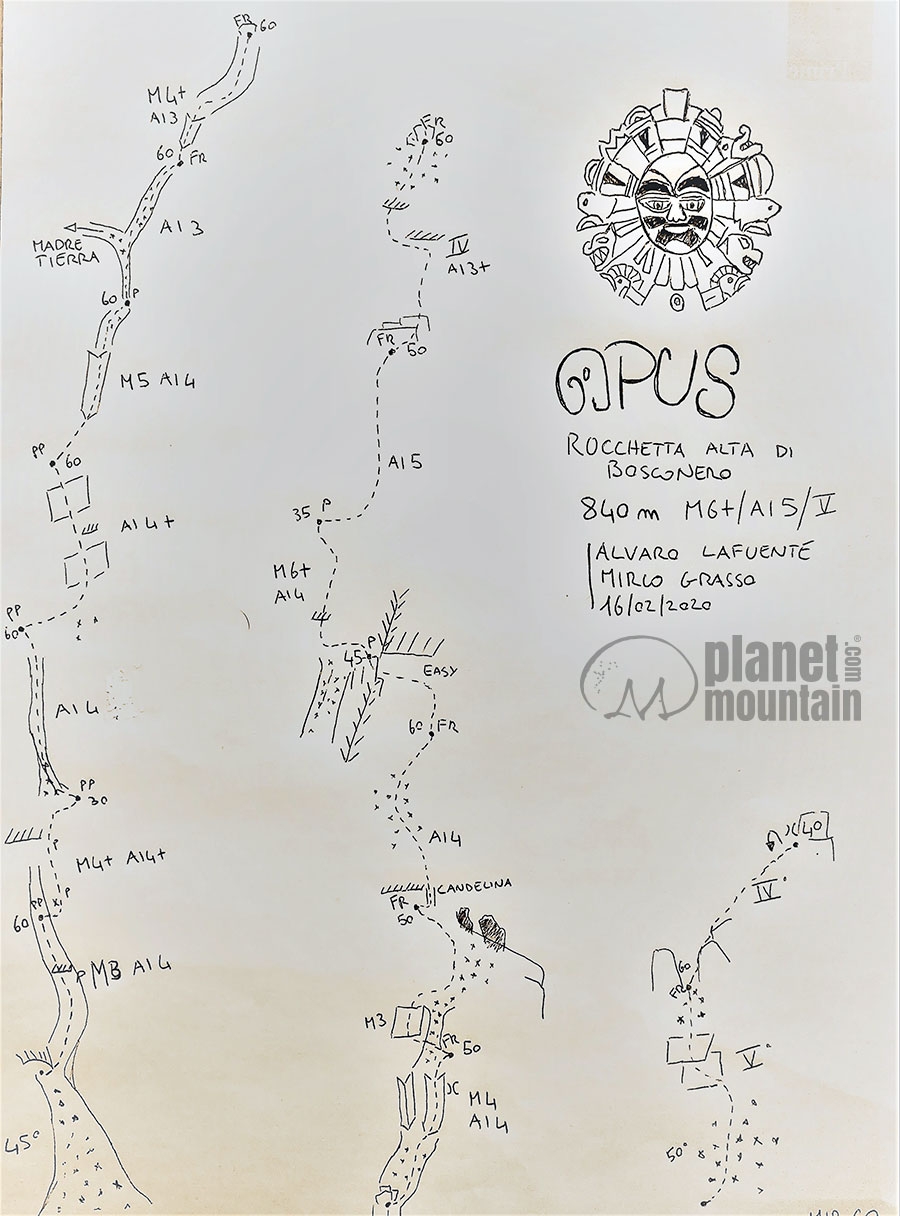 FR 60
M4+
AI3
60 FR
AI3
MADRE
TIERRA
60 P
M5 AI4
PP 60
AI4+
PP
60
AI4
PP
30
P
M4+ AI4+
P
PP
60
P M3 AI4
45°
FR
60
IV
AI3+
FR 50
AI5
35 P
M6+
AI4
P
45
EASY
60 FR
AI4
CANDELINA
FR
50
M3
FR 50
M4
AI4
OPUS
ROCCHETTA ALTA DI
BOSCONERO
840m M6+/AI5/V
ALVARO LAFUENTE
MIRCO GRASSO
16/02/2020
planet
mountain
.com
®
40
IV°
60
FR
V°
50°